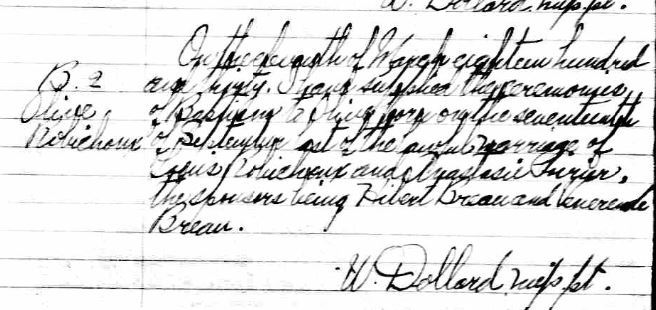 W. Dollard miss. pt.
On the eighth of March eighteen hundred
B. 2 and fifty. I have supplied the ceremonies
Olive of Baptism to Olive born on the seventeenth
Robichaux of September last of the lawful marriage of
Robichaux and Anastasie
the sponsors being Hibert Breau and Venerende
Breau.
W. Dollard miss. pt.